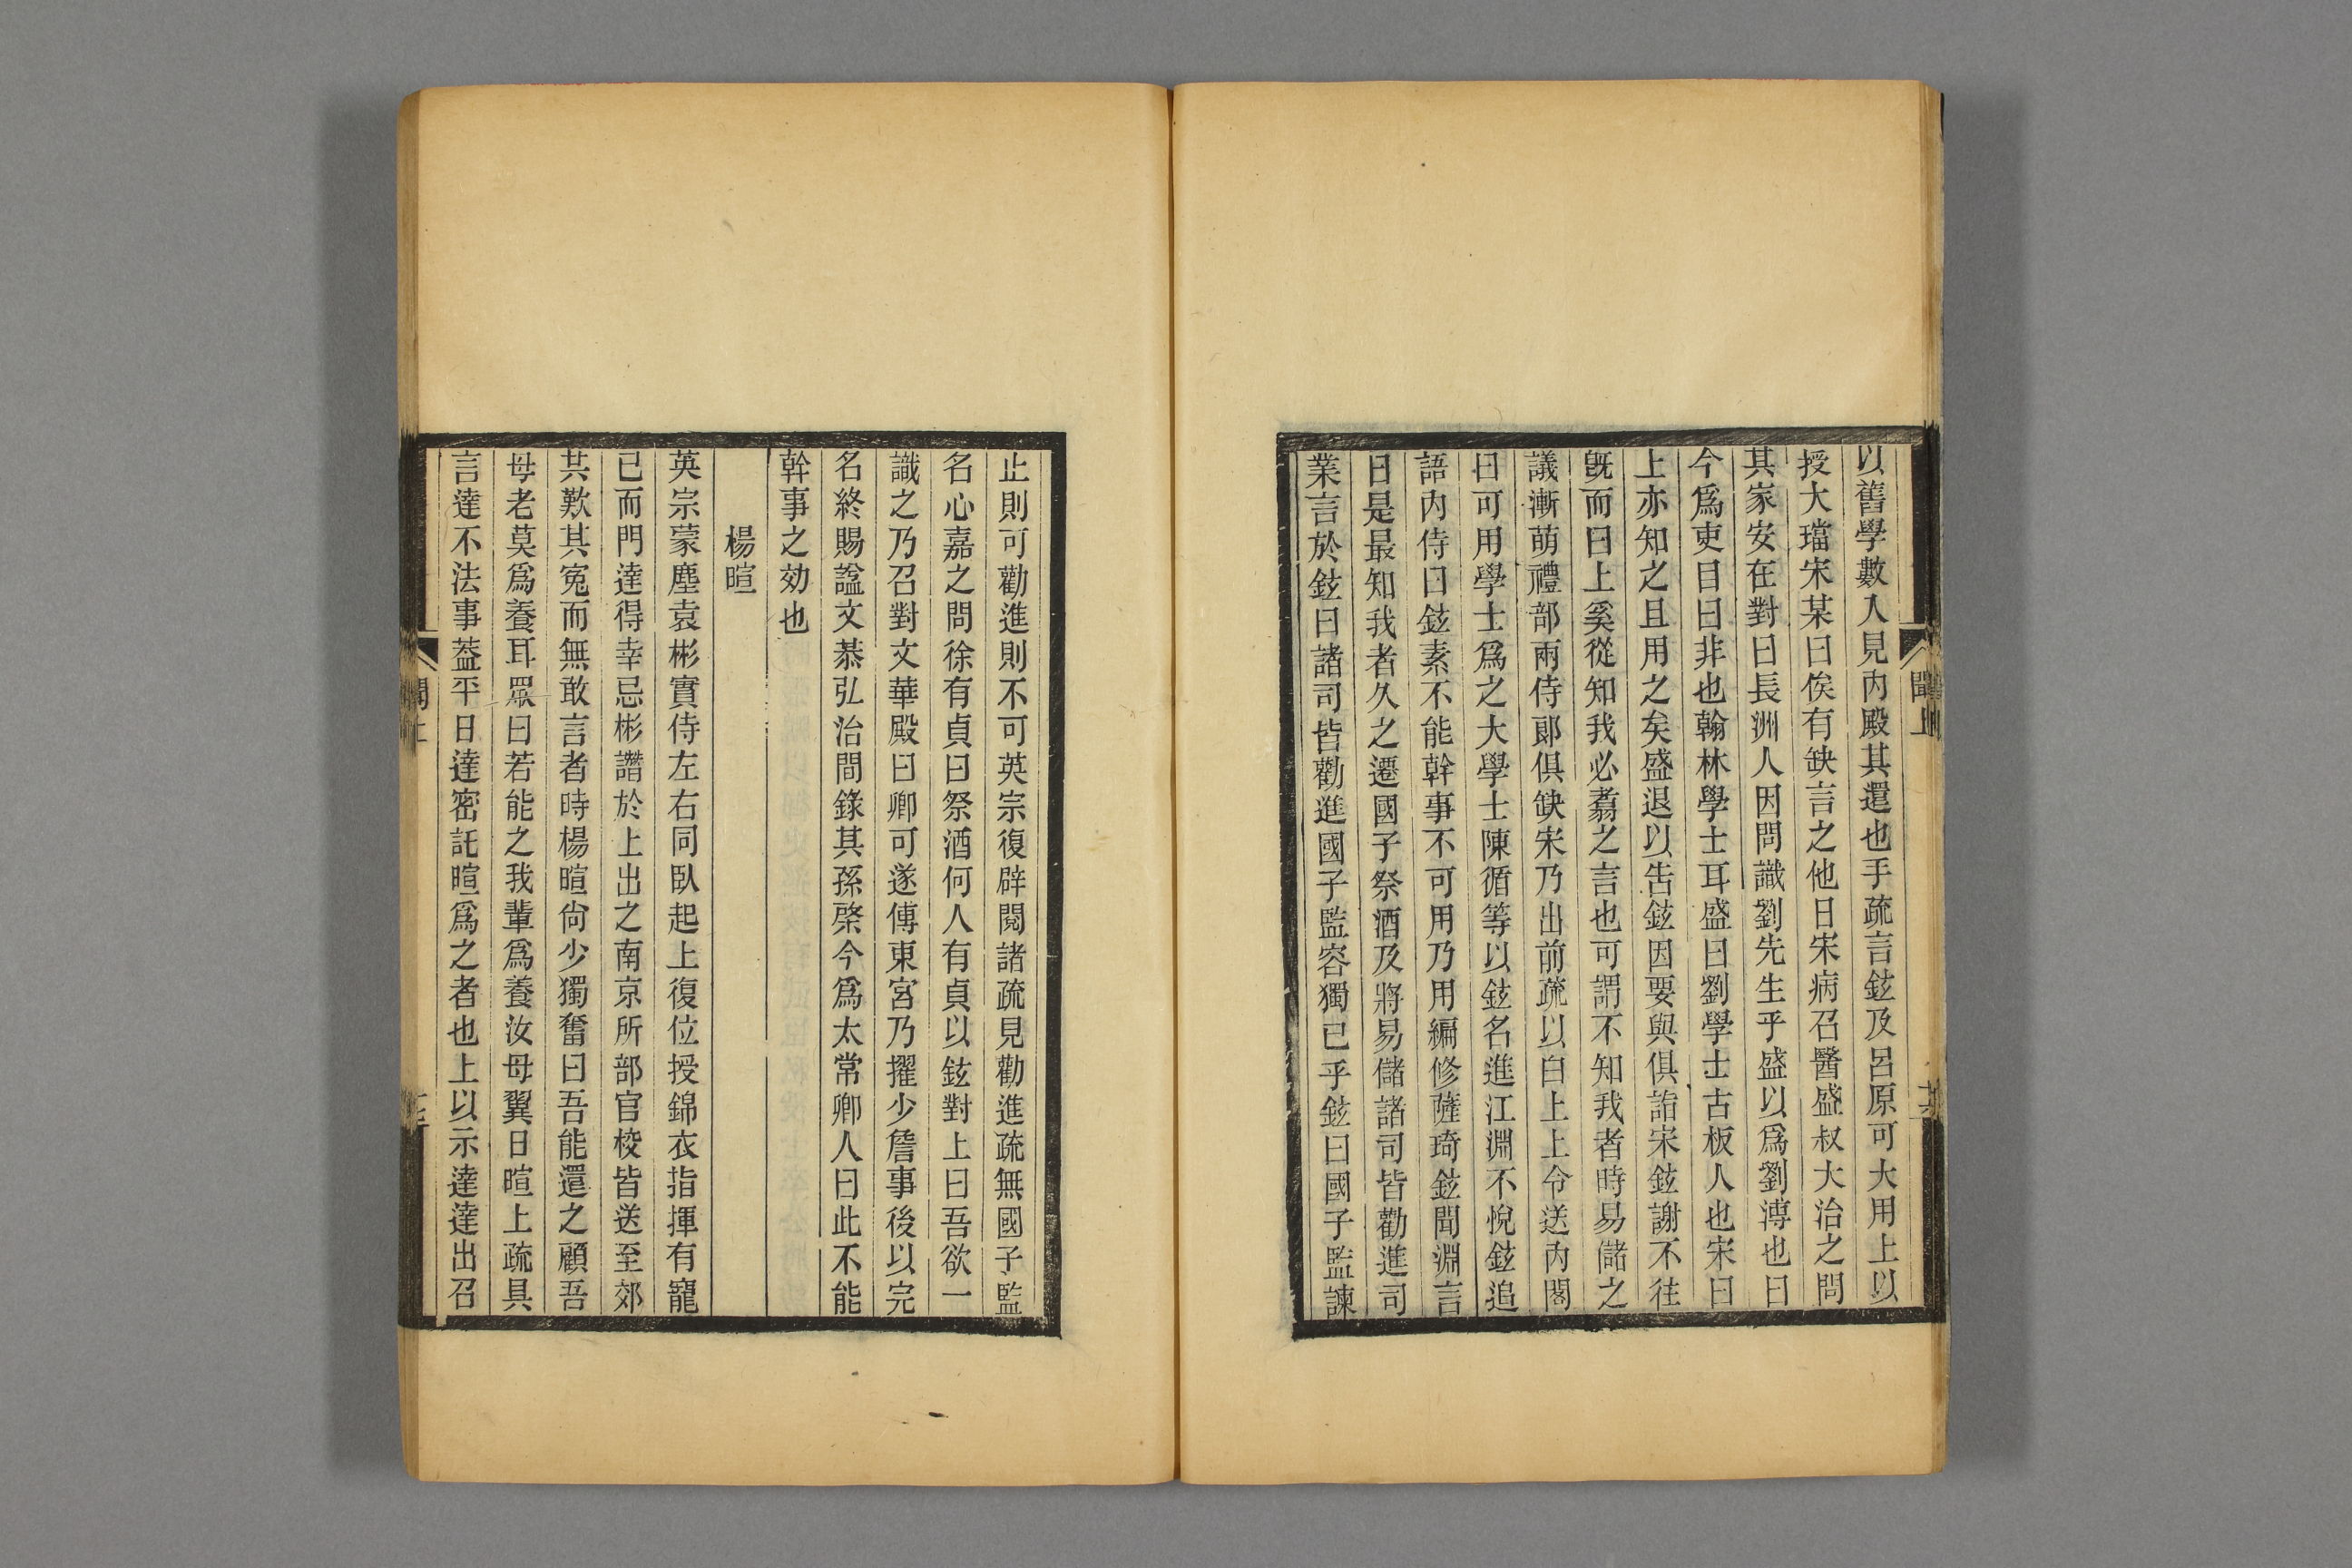 以舊學數人見內殿其還也手疏言鉉及呂原可大用上以
授大璫宋某曰俟有缺言之他日宋病召醫盛叔大治之問
其家安在對曰長洲人因問識劉先生乎盛以爲劉溥也曰
今爲吏目曰非也翰林學士耳盛曰劉學士古板人也宋曰
上亦知之且用之矣盛退以告鉉因要與俱詣宋鉉謝不往
旣而曰上奚從知我必翥之言也可謂不知我者時易儲之
議漸萌禮部兩侍郞俱缺宋乃出前疏以白上上令送內閣
曰可用學士爲之大學士陳循等以鉉名進江淵不悅鉉追
語內侍曰鉉素不能幹事不可用乃用編修薩琦鉉聞淵言
曰是最知我者久之遷國子祭酒及將易儲諸司皆勸進司
業言於鉉曰諸司皆勸進國子監容獨已乎鉉曰國子監諫
聞上
止則可勸進則不可英宗復辟閱諸疏見勸進疏無國子監
名心嘉之問徐有貞曰祭酒何人有貞以鉉對上曰吾欲一
識之乃召對文華殿曰卿可遂傅東宮乃擢少詹事後以完
名終賜諡文恭弘治間錄其孫棨今爲太常卿人曰此不能
幹事之効也
楊暄
英宗蒙塵袁彬實侍左右同臥起上復位授錦衣指揮有寵
已而門達得幸忌彬譖於上出之南京所部官校皆送至郊
共歎其冤而無敢言者時楊暄尙少獨奮曰吾能還之顧吾
母老莫爲養耳眾曰若能之我輩爲養汝母翼日暄上疏具
言達不法事葢平日達密託暄爲之者也上以示達達出召